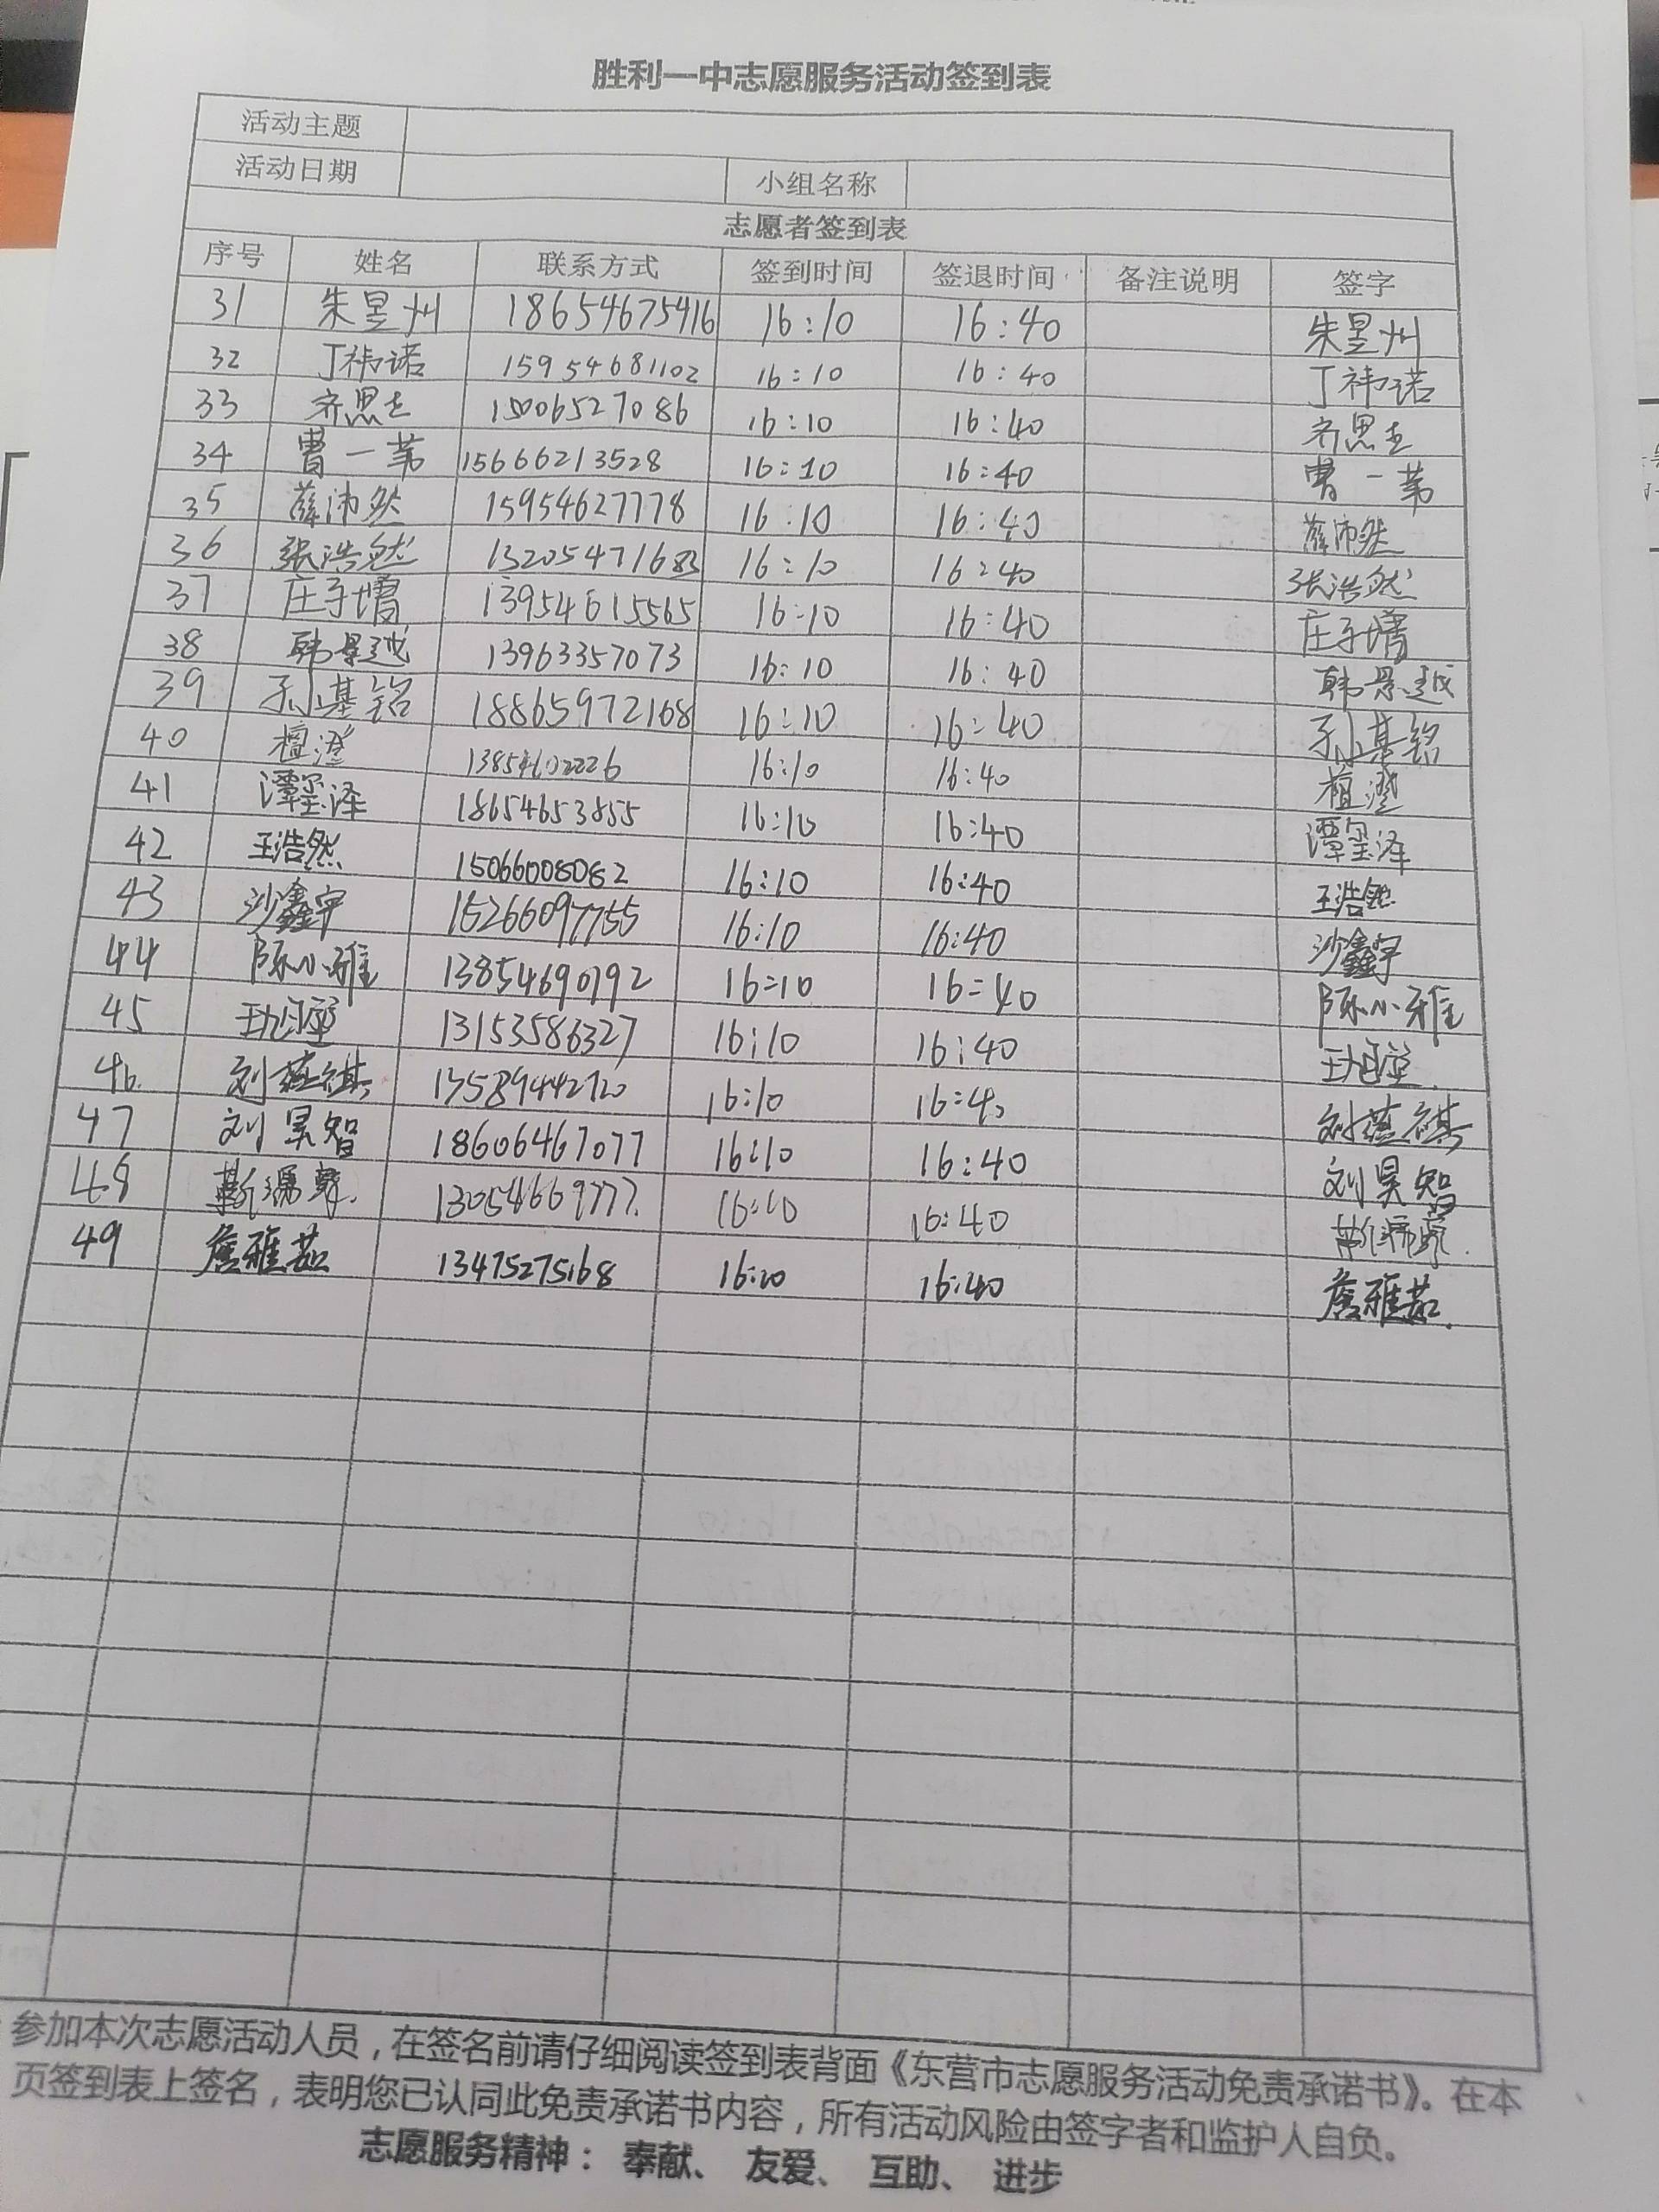 胜利一中志愿服务活动签到表
活动主题
活动日期 小组名称
志愿者签到表
序号 姓名 联系方式 签到时间 签退时间 备注说明 签字
31 朱昱州 18654675416 16:10 16:40 朱昱州
32 丁祎诺 15954681102 16:10 16:40 丁祎诺
33 齐思 15006527086 16:10 16:40 齐思
34 曹一苇 15666213528 16:10 16:40 曹一苇
35 薛沛然 15954627778 16:10 16:40 薛沛然
36 张浩然 13205471683 16:10 16:40 张浩然
37 庄子墡 13954615565 16:10 16:40 庄子墡
38 韩景越 13963357073 16:10 16:40 韩景越
39 孙基铭 18865972168 16:10 16:40 孙基铭
40 檀澄 13854602226 16:10 16:40 檀澄
41 潭玺泽 18654653855 16:10 16:40 潭玺泽
42 王浩然 15066008082 16:10 16:40 王浩然
43 沙鑫宇 15266097755 16:10 16:40 沙鑫宇
44 陈小雅 13854690192 16:10 16:40 陈小雅
45 13153586327 16:10 16:40
46 刘蕴祺 13589442720 16:10 16:40 刘蕴祺
47 刘昊智 18606467077 16:10 16:40 刘昊智
48 13054669777 16:10 16:40
49 詹雅茹 13475275168 16:10 16:40 詹雅茹
参加本次志愿活动人员，在签名前请仔细阅读签到表背面《东营市志愿服务活动免责承诺书》。在本
页签到表上签名，表明您已认同此免责承诺书内容，所有活动风险由签字者和监护人自负。
志愿服务精神： 奉献、 友爱、 互助、 进步